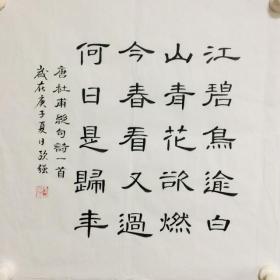 江碧鳥逾白
山青花欲燃
今春看又過
何日是歸年
唐杜甫絕句詩一首
歲在庚子夏日